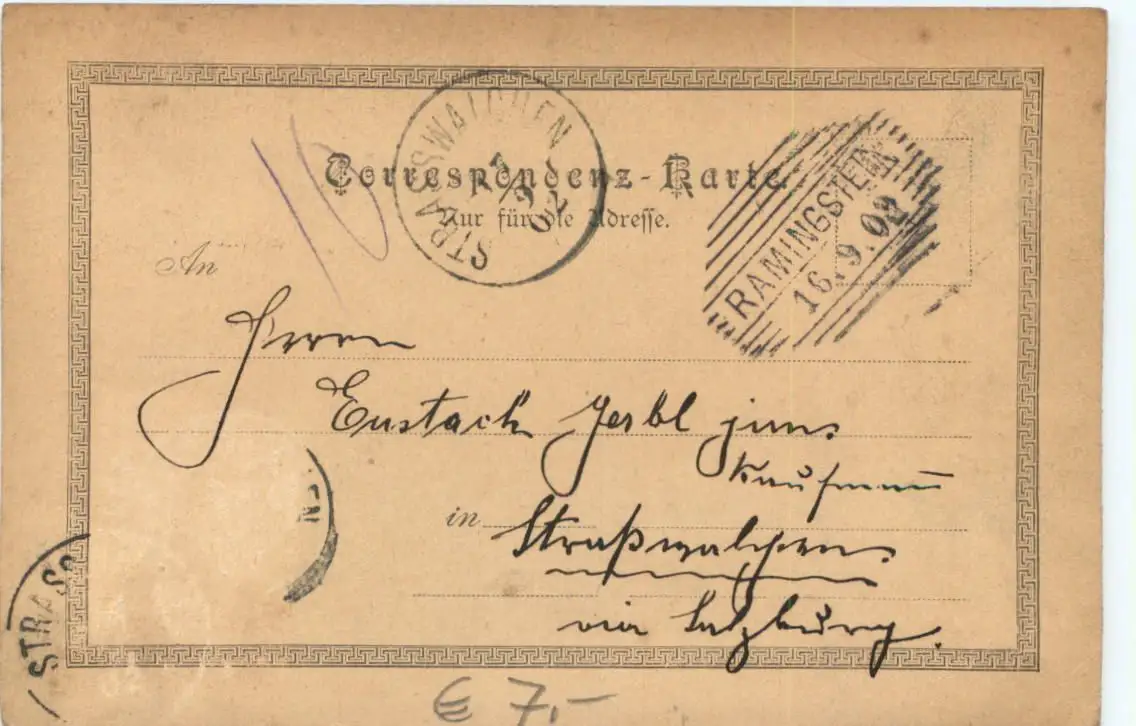 Correspondenz-Karte.
Nur für die Adresse.
STRASSWALCHEN
02
RAMINGSTEIN
16.9.02
An
Herrn
Eustach Jerbl jun.
Kaufmann
in Straßwalchen
via Salzburg.
STRASS
EN
€ 7,-